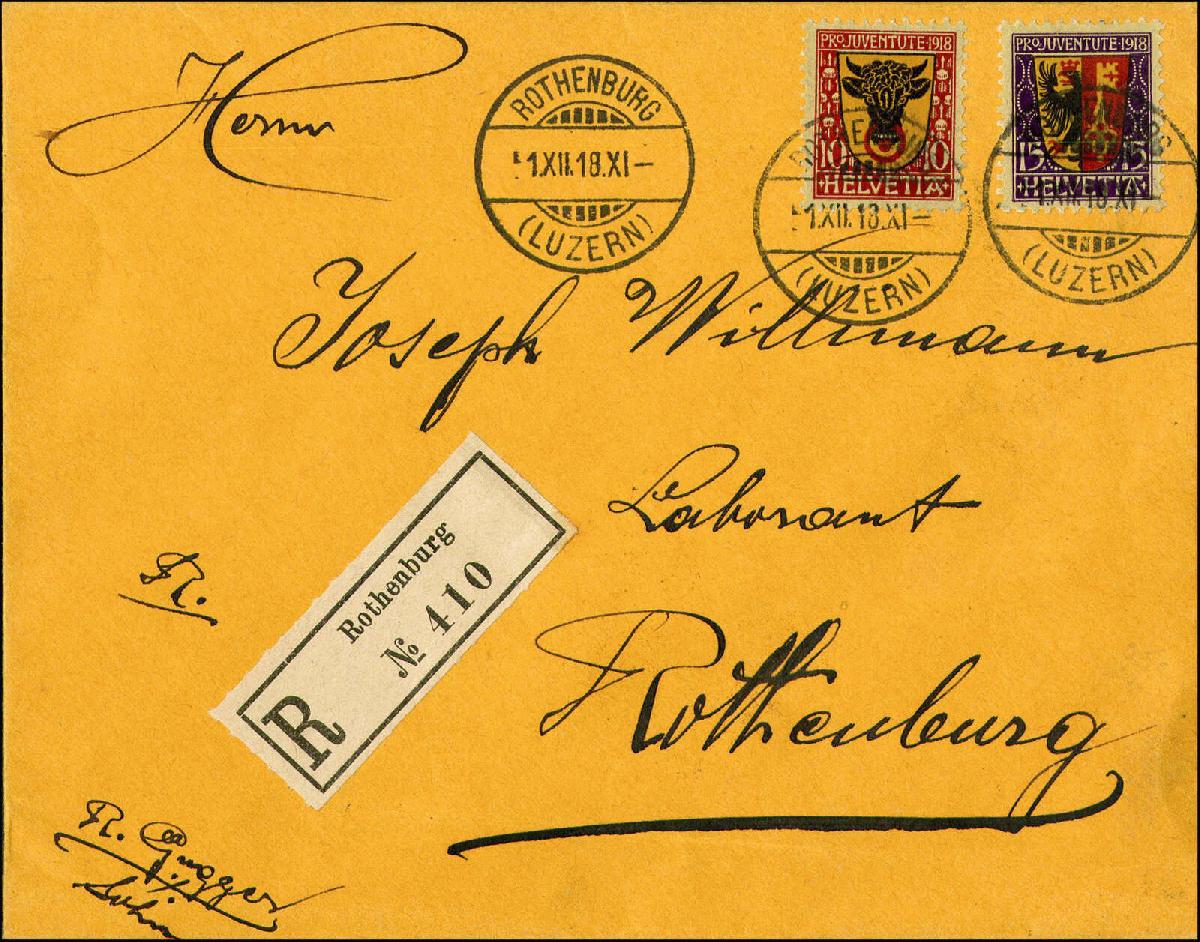 Herrn
ROTHENBURG
1.XII.18.XI-
(LUZERN)
PRO JUVENTUTE·1918
10 10
HELVETIA
PRO JUVENTUTE·1918
15 15
HELVETIA
1.XII.18.XI-
(LUZERN)
1.XII.18.XI-
(LUZERN)
Joseph Willimann
Laborant
Rothenburg
R.
R
Rothenburg
№ 410